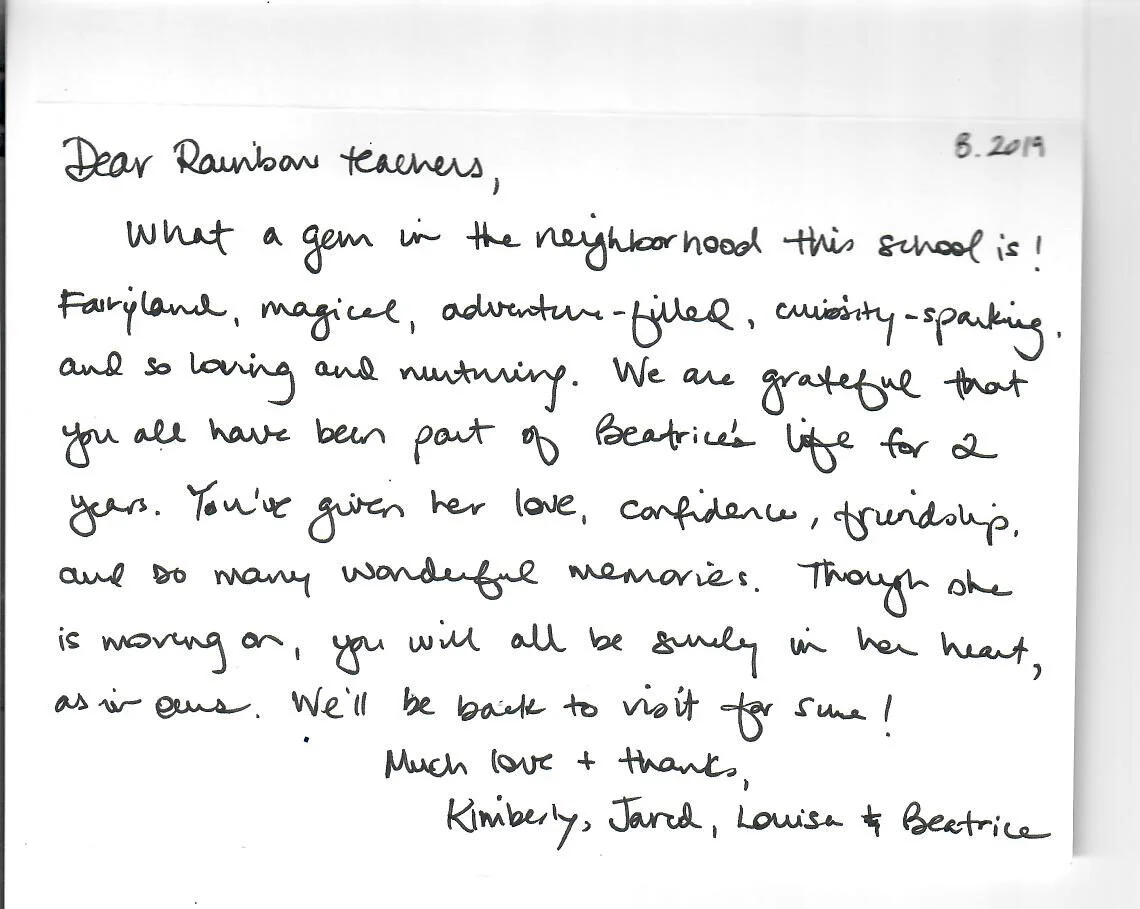 Dear Rainbow teachers,
8.2019
What a gem in the neighborhood this school is!
Fairyland, magical, adventure-filled, curiosity-sparking,
and so loving and nurturing. We are grateful that
you all have been part of Beatrice's life for 2
years. You've given her love, confidence, friendship,
and so many wonderful memories. Though she
is moving on, you will all be surely in her heart,
as in ours. We'll be back to visit for sure!
Much love + thanks,
Kimberly, Jared, Louisa & Beatrice